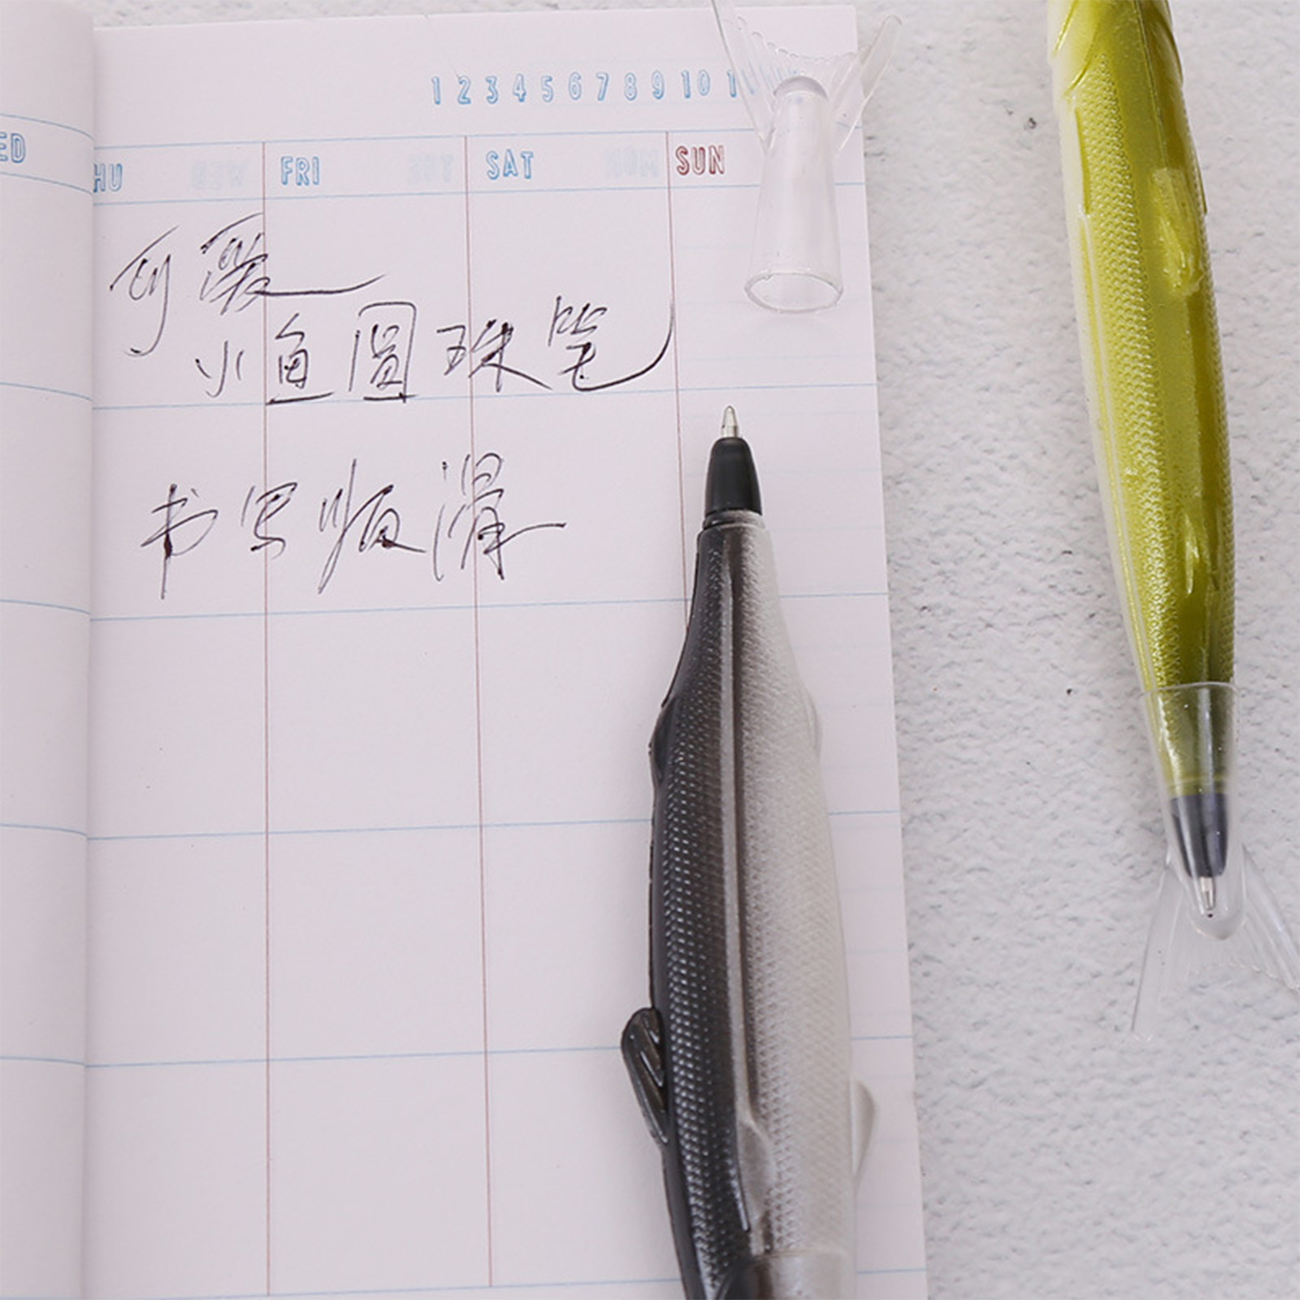 1 2 3 4 5 6 7 8 9 10 1
ED HU FRI SAT SUN
可爱
小鱼圆珠笔
书写顺滑